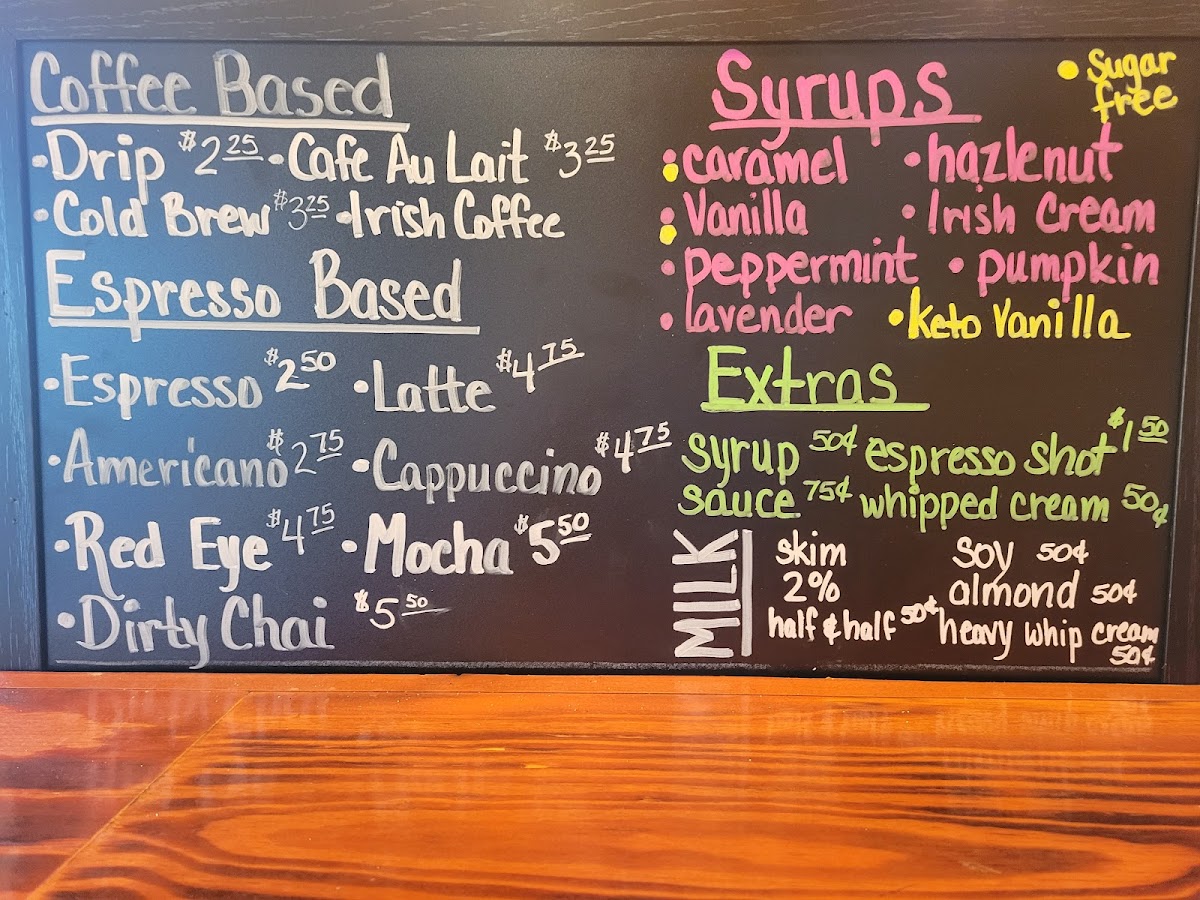 Coffee Based
•Drip $2.25 •Cafe Au Lait $3.25
•Cold Brew $3.25 •Irish Coffee
Espresso Based
•Espresso $2.50 •Latte $4.75
•Americano $2.75 •Cappuccino $4.75
•Red Eye $4.75 •Mocha $5.50
•Dirty Chai $5.50
Syrups
• Sugar
free
•caramel •hazlenut
•Vanilla •Irish Cream
•peppermint •pumpkin
•lavender •keto Vanilla
Extras
syrup 50¢ espresso shot $1.50
sauce 75¢ whipped cream 50¢
MILK
skim soy 50¢
2% almond 50¢
half & half 50¢ heavy whip cream
50¢